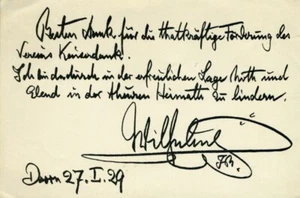 Besten Dank für die thatkräftige Förderung des
Vereins Kaiserdank.
Ich bin dadurch in der erfreulichen Lage Noth und
Elend in der theuren Heimath zu lindern.
Wilhelm
I.R.
Doorn 27.I.29